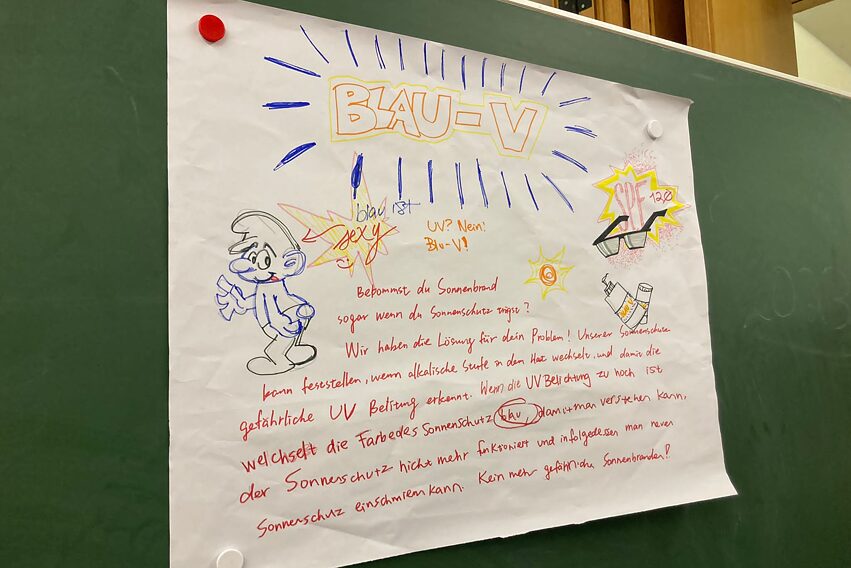 BLAU-V
blau ist
sexy
UV? Nein!
Blu-V!
SPF 120
Bekommst du Sonnenbrand
sogar wenn du Sonnenschutz trägst?
Wir haben die Lösung für dein Problem! Unserer Sonnenschutz
kann feststellen, wenn alkalische Stufe in den Haut wechselt, und damit die
gefährliche UV erkennt. Wenn die UV Belichtung zu hoch ist
welchselt die Farbe des Sonnenschutz blau, damit man verstehen kann,
der Sonnenschutz nicht mehr funktioniert und infolgedessen man neuen
Sonnenschutz einschmieren kann. Kein mehr gefährliche Sonnenbranden!